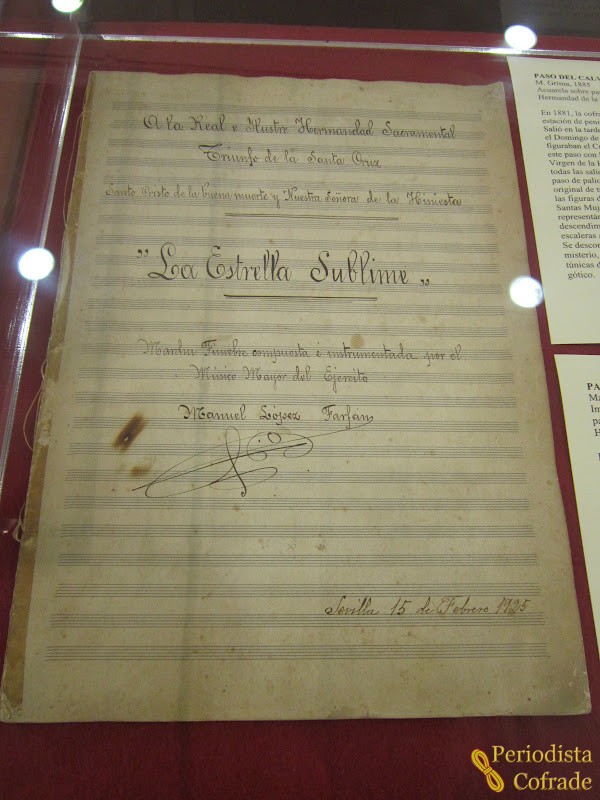 A la Real e Ilustre Hermandad Sacramental
Triunfo de la Santa Cruz
Santo Cristo de la buena muerte y Nuestra Señora de la Hiniesta
"La Estrella Sublime"
Marcha Fúnebre compuesta é instrumentada por el
Músico Mayor del Ejercito
Manuel López Farfán
Sevilla 15 de Febrero 1925
PASO DEL CALV
M. Grima, 1885
Acuarela sobre pa
Hermandad de la
En 1881, la cofra
estación de peni
Salió en la tarde
el Domingo de
figuraban el C
este paso con
Virgen de la H
todas las salid
paso de palio
original de t
las figuras d
Santas Muj
representán
descendim
escaleras
Se descon
misterio,
túnicas d
gótico.
PA
Ma
Im
pa
H
Periodista
Cofrade